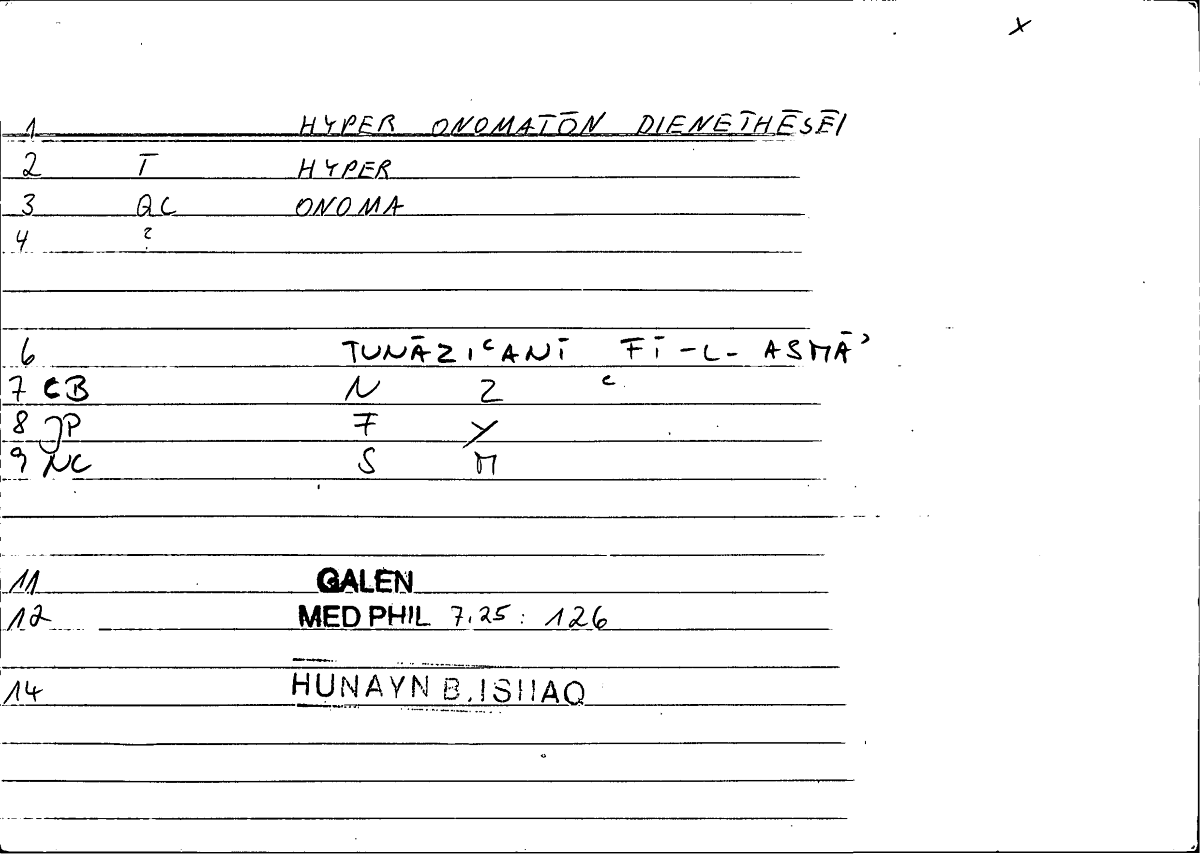 x
1 HYPER ONOMATŌN DIENETHĒSĒI
2 T HYPER
3 QC ONOMA
4 ?
6 TUNĀZIʿANĪ FĪ-L-ASMĀʾ
7 CB N Z ʿ
8 JP F Y
9 NC S M
11 GALEN
12 MED PHIL 7.25: 126
14 HUNAYN B. ISHAQ